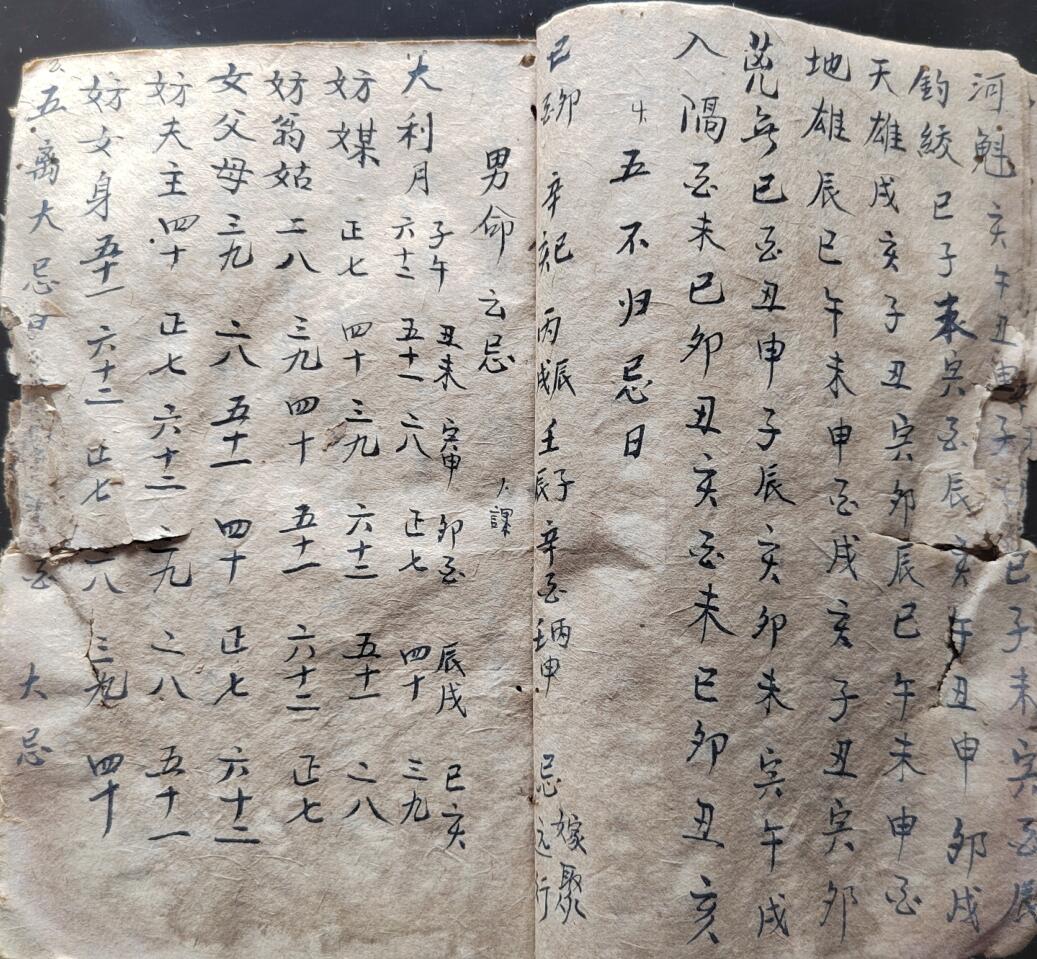 河魁 亥午丑申子
巳子未寅酉辰
鈎絞 巳子未寅酉辰亥午丑申卯戌
天雄 戌亥子丑寅卯辰巳午未申酉
地雄 辰巳午未申酉戌亥子丑寅卯
荒無 巳酉丑申子辰亥卯未寅午戌
入隔 酉未巳卯丑亥酉未巳卯丑亥
五不归忌日
己卯 辛 丙戌 辰 壬辰 子 辛酉 丙申 忌 嫁 行
男命 云忌 課
子午 丑未 寅申 卯酉 辰戌 巳亥
大利月 六十二 五十一 二八 正七 四十 三九
妨媒 正七 四十 三九 六十二 五十一 二八
妨翁姑 二八 三九 四十 五十一 六十二 正七
女父母 三九 二八 五十一 四十 正七 六十二
妨夫主 四十 正七 六十二 三九 二八 五十一
妨女身 五十一 六十二 正七 二八 三九 四十
五离大忌日 酉 大忌